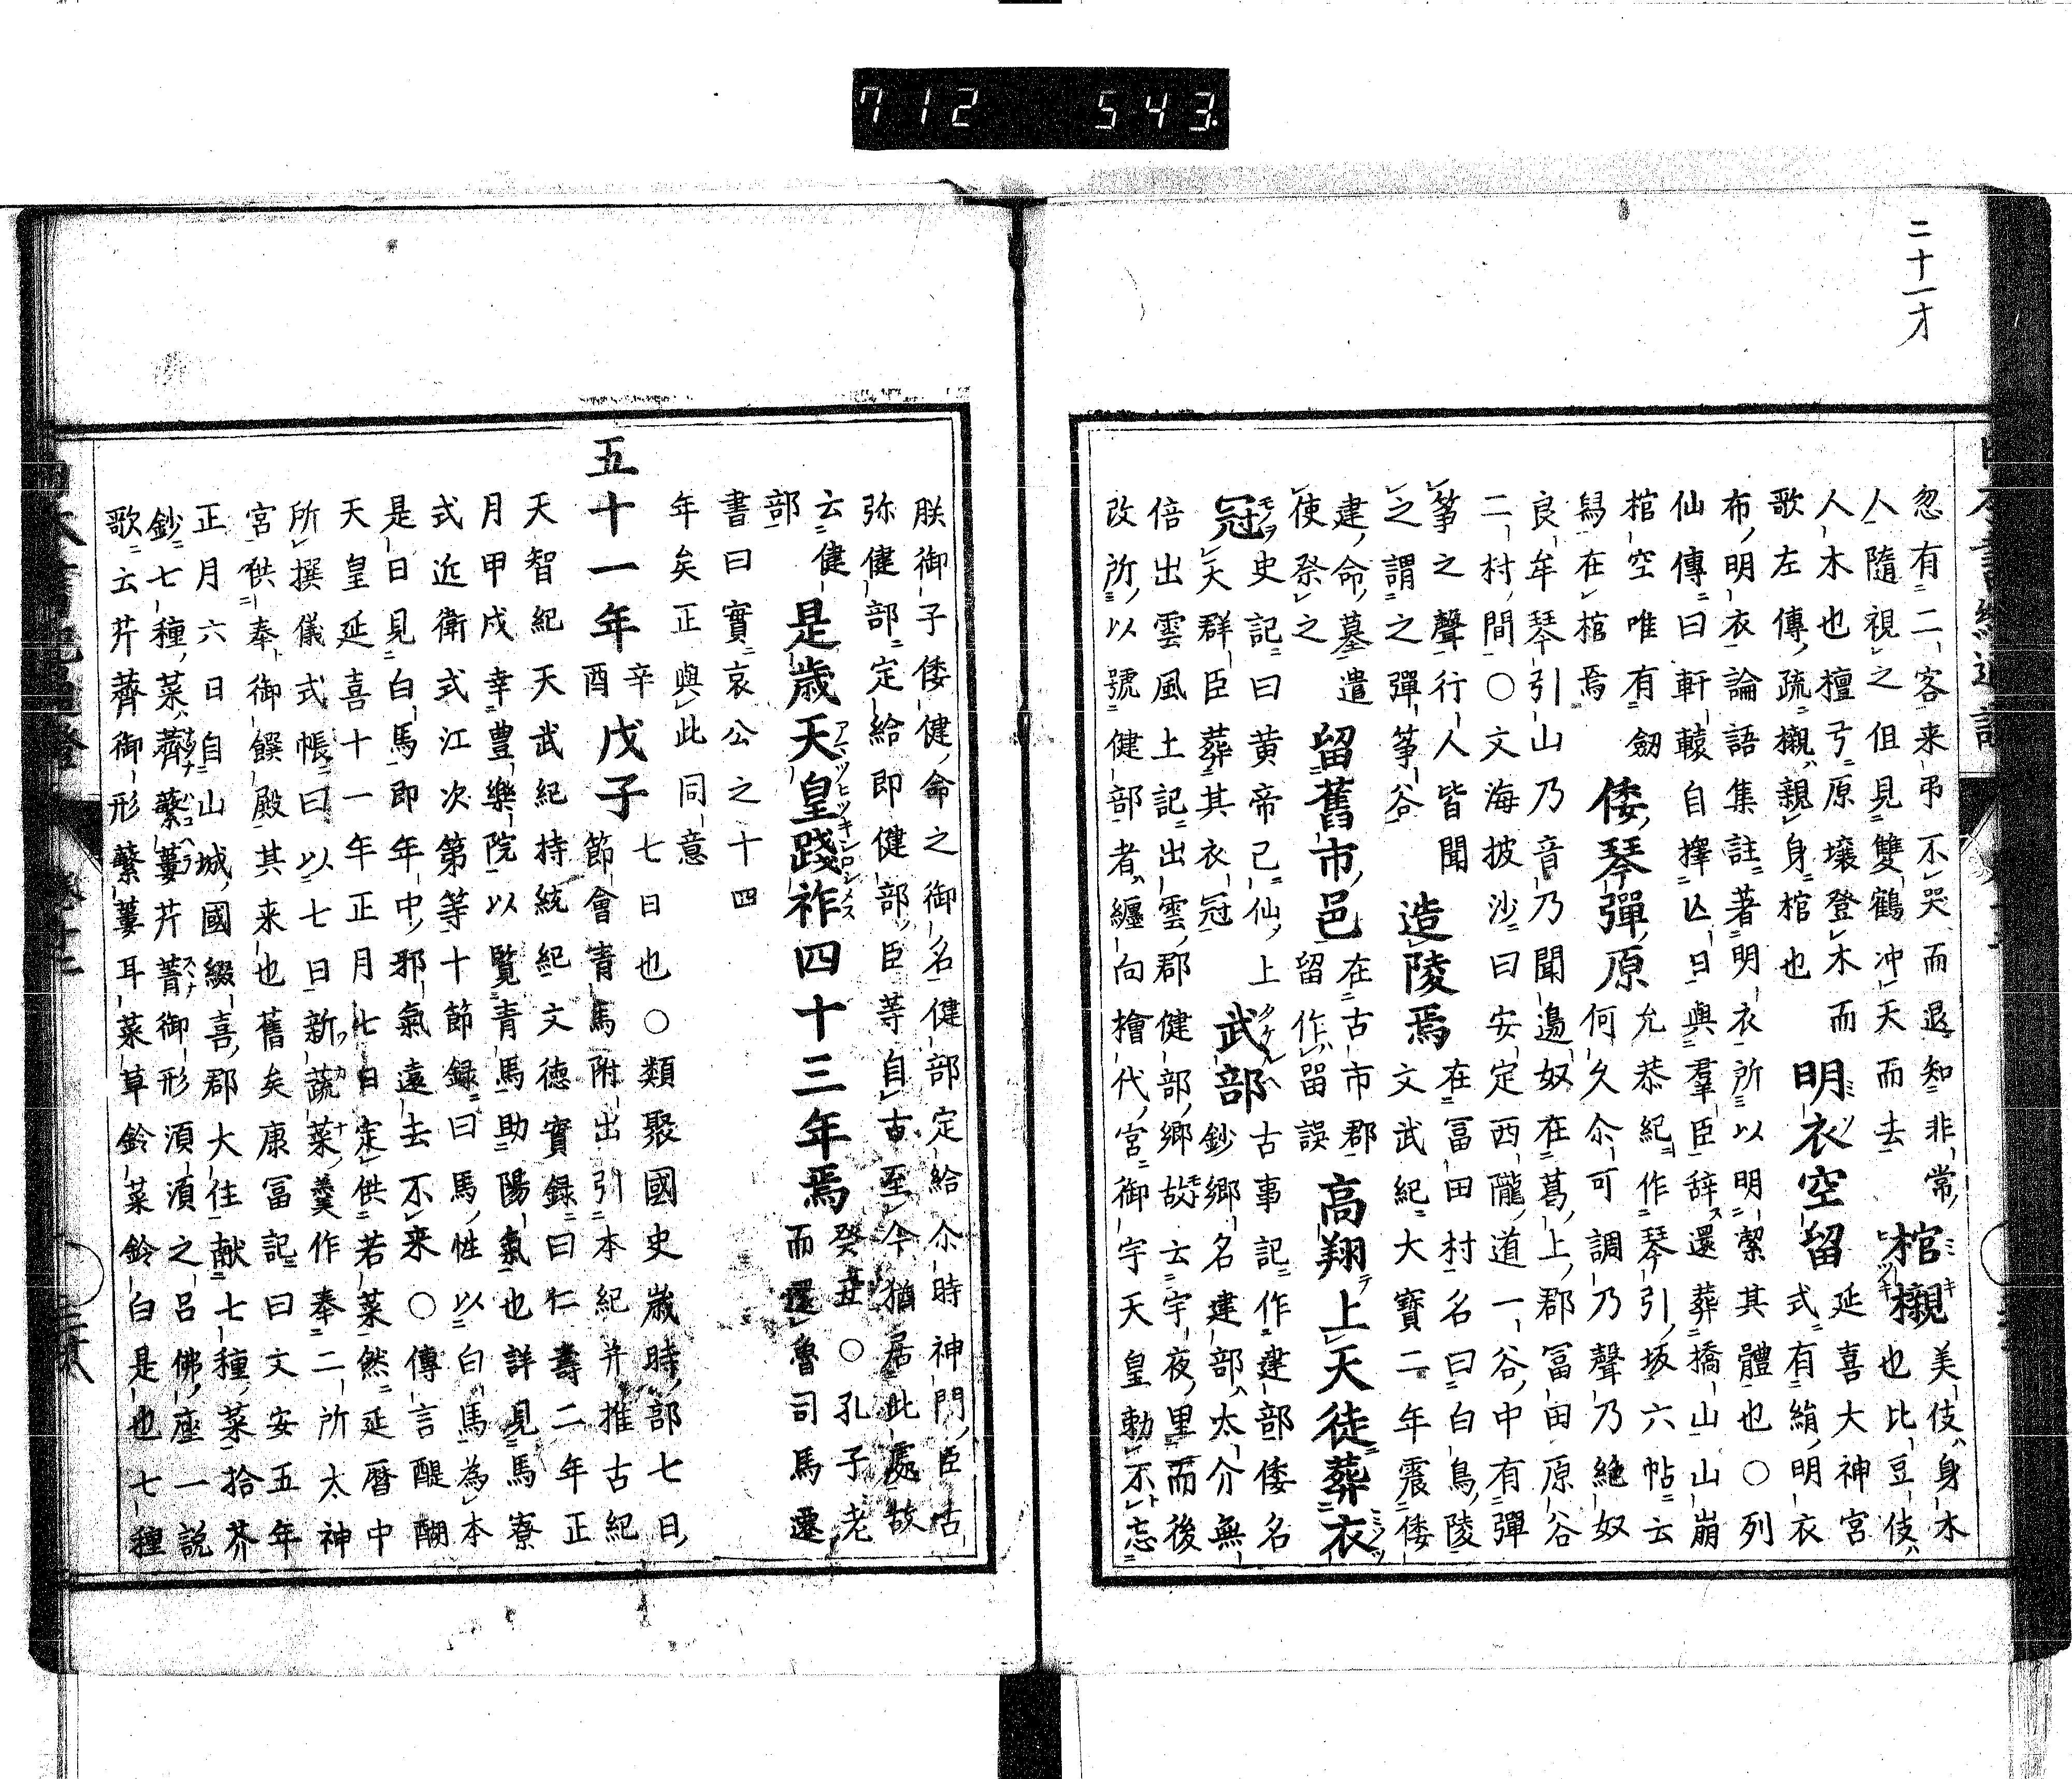 712 543.
二十一才
忽有二客来弔不哭而退知非常棺櫬美伎身木
人隨視之但見雙鶴冲天而去也比豆伎
人木也檀弓原壤登木而明衣空留延喜大神宮
歌左傳疏櫬親身棺也式有絹明衣
布明衣論語集註著明衣所以明潔其體也○列
仙傳曰軒轅自擇亾日與羣臣辞還葬橋山山崩
棺空唯有劔倭琴彈原允恭紀作琴引坂六帖云
舄在棺焉何久尒可調乃聲乃絶奴
良牟琴引山乃音乃聞邉奴在葛上郡冨田原谷
二村間○文海披沙曰安定西隴道一谷中有彈
筝之聲行人皆聞造陵焉在冨田村名曰白鳥陵
之謂之彈筝谷文武紀大寳二年震倭
建命墓遣留舊市邑在古市郡高翔上天徒葬衣
使祭之留作畄誤
冠史記曰黄帝已仙上武部古事記作建部倭名
天群臣葬其衣冠鈔郷名建部太介無
倍出雲風土記出雲郡健部郷故云宇夜里而後
改所以號健部者纏向檜代宮御宇天皇勅不忘
朕御子倭健命之御名健部定給尒時神門臣古
弥健部定給即健部臣等自古至今猶居此處故
云健是歳天皇踐祚四十三年焉癸丑○孔子老
部而還魯司馬遷
書曰實哀公之十四
年矣正與此同意
五十一年辛酉戊子七日也○類聚國史歳時部七日
節會青馬附出引本紀并推古紀
天智紀天武紀持統紀文徳實録曰仁壽二年正
月甲戌幸豊樂院以覧青馬助陽氣也詳見馬寮
式近衛式江次第等十節録曰馬性以白馬為本
是日見白馬即年中邪氣遠去不来○傳言醍醐
天皇延喜十一年正月七日定供若菜然延暦中
所撰儀式帳曰以七日新蔬菜羹作奉二所太神
宮供奉御饌殿其来也舊矣康冨記曰文安五年
正月六日自山城國綴喜郡大住献七種菜拾芥
鈔七種菜薺蘩蔞芹菁御形湏湏之呂佛座一説
歌云芹薺御形蘩蔞耳菜草鈴菜鈴白是也七種